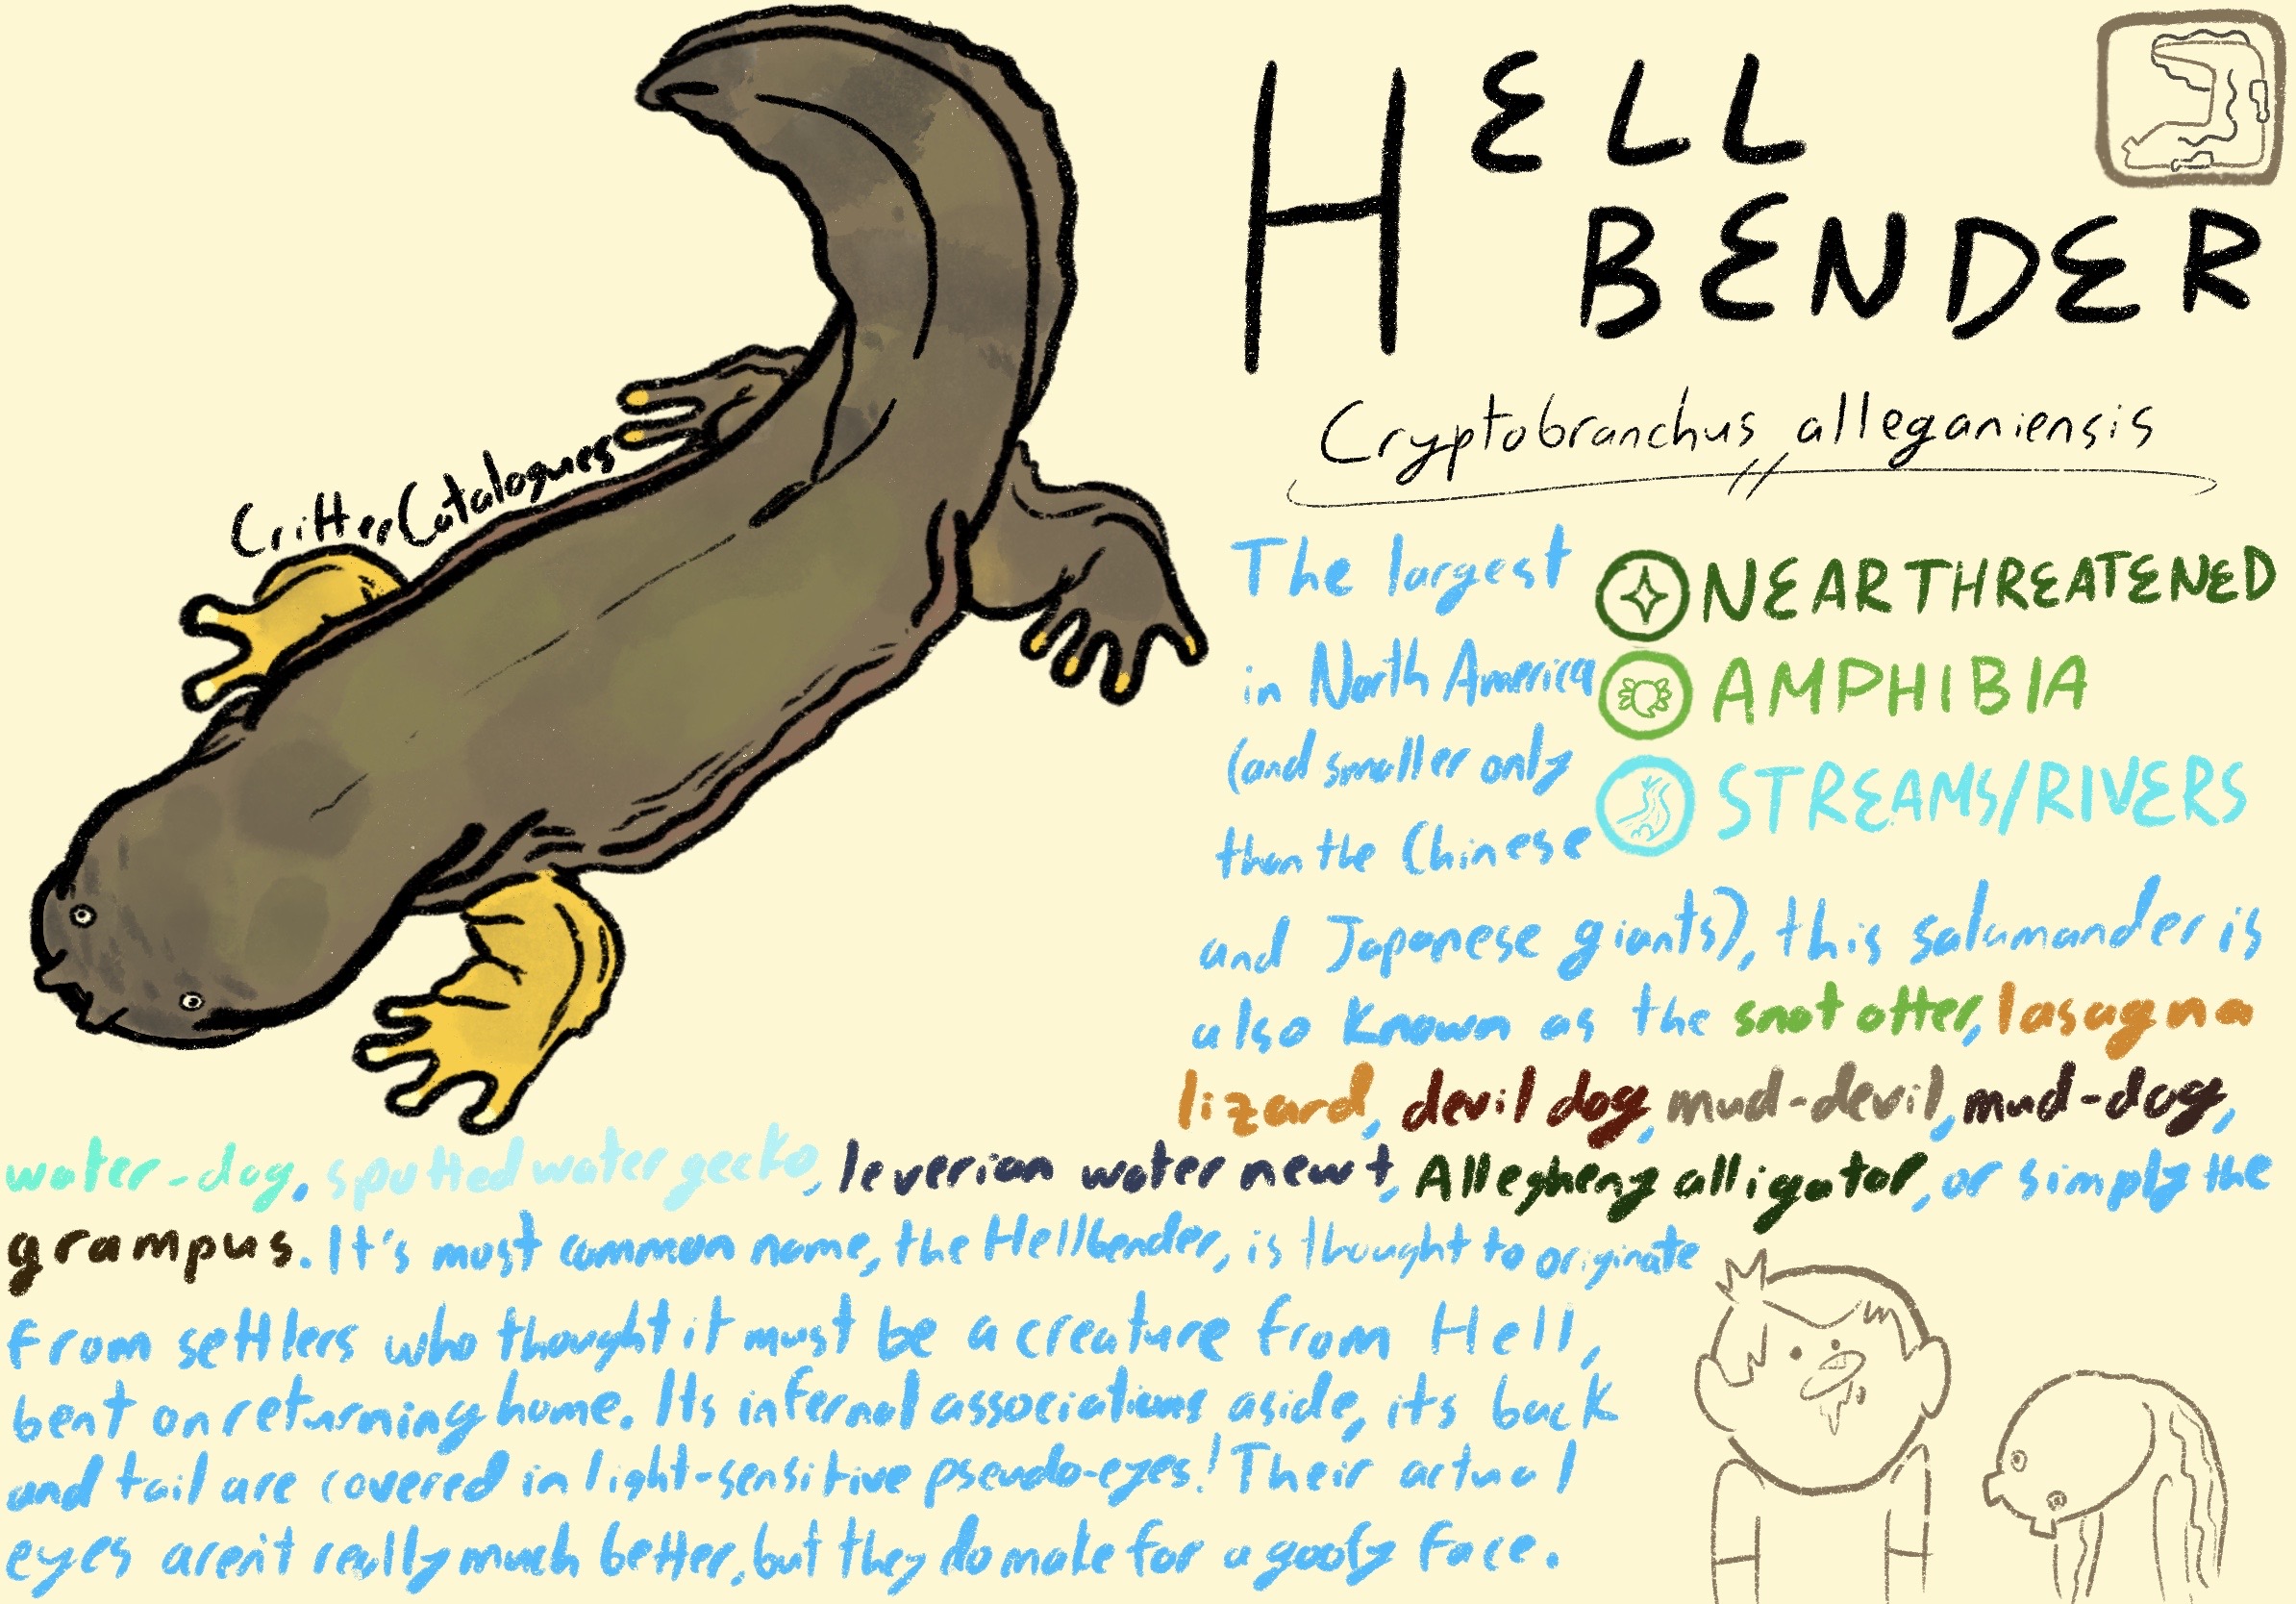 HELL
BENDER
Cryptobranchus alleganiensis
CritterCatalogues
NEAR THREATENED
AMPHIBIA
STREAMS/RIVERS
The largest
in North America
(and smaller only
than the Chinese
and Japanese giants), this salamander is
also known as the snot otter, lasagna
lizard, devil dog, mud-devil, mud-dog,
water-dog, spotted water gecko, leverian water newt, Allegheny alligator, or simply the
grampus. It's most common name, the Hellbender, is thought to originate
from settlers who thought it must be a creature from Hell,
bent on returning home. Its infernal associations aside, its back
and tail are covered in light-sensitive pseudo-eyes! Their actual
eyes aren't really much better, but they do make for a goofy face.